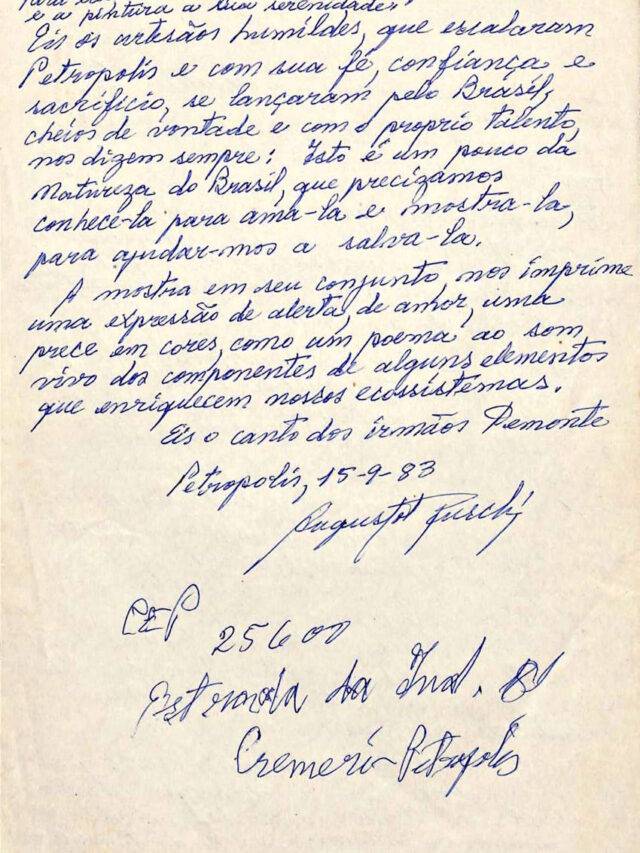 e a pintura a sua serenidade."
Eis os artesãos humildes, que escalaram
Petropolis e com sua fé, confiança e
sacrifício, se lançaram pelo Brasil,
cheios de vontade e com o proprio talento,
nos dizem sempre: Isto é um pouco da
Natureza do Brasil, que precizamos
conhece-la para ama-la e mostra-la,
para ajudar-mos a salva-la.
A mostra em seu conjunto, nos imprime
uma expressão de alerta, de amor, uma
prece em cores, como um poema ao som
vivo dos componentes de alguns elementos
que enriquecem nossos ecossistemas.
Eis o canto dos irmãos Demonte
Petropolis, 15-9-83
Augusto Ruschi
CEP 25600
Estrada da
Cremerí - Petropolis